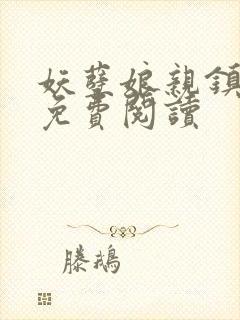 妖孽娘親鎮
免費閱讀
滕鵝